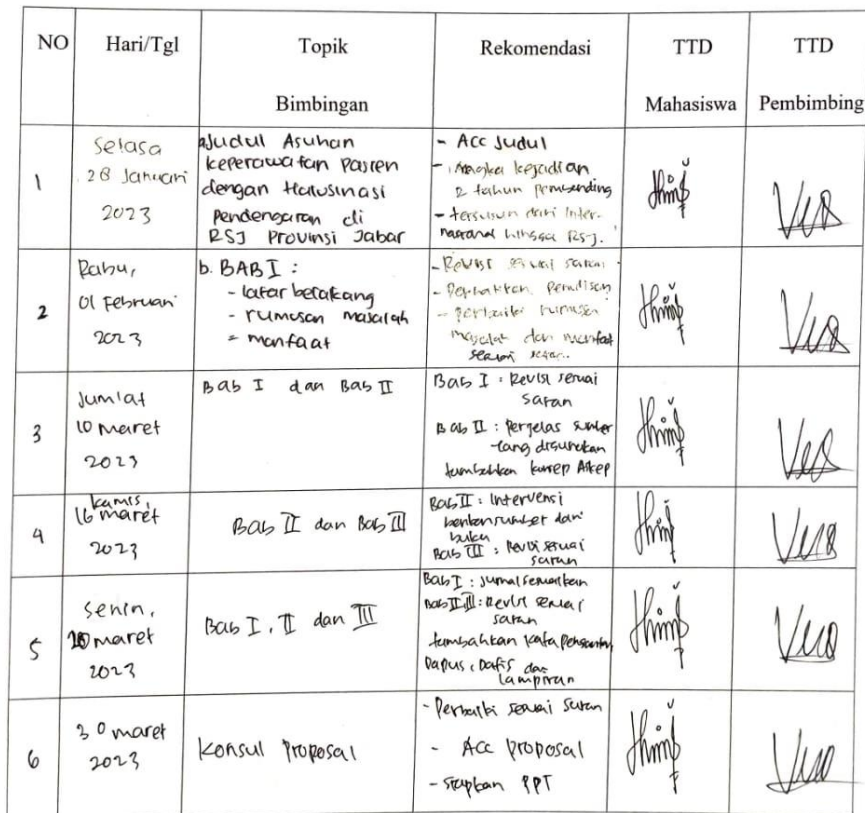 NO Hari/Tgl Topik Rekomendasi TTD TTD
Bimbingan Mahasiswa Pembimbing
1
Selasa
28 Januari
2023
a. Judul Asuhan
keperawatan Pasien
dengan Halusinasi
Pendengaran di
RSJ Provinsi Jabar
- Acc Judul
- Angka kejadian
2 tahun pembanding
- tersusun dari Inter-
nasional hingga RSJ.
2
Rabu,
01 Februari
2023
b. BAB I :
- latar belakang
- rumusan masalah
- manfaat
- Revisi sesuai saran
- Perhatikan Penulisan
- perbaiki rumusan
masalah dan manfaat
sesuai saran.
3
Jum'at
10 maret
2023
Bab I dan Bab II
Bab I : Revisi sesuai
saran
Bab II : Perjelas sumber
yang digunakan
tambahkan konsep Askep
4
kamis,
16 maret
2023
Bab II dan Bab III
Bab II : Intervensi
sumber dari
buku
Bab III : Revisi sesuai
saran
5
Senin,
20 maret
2023
Bab I, II dan III
Bab I : Jurnal sesuaikan
Bab II, III : Revisi sesuai
saran
tambahkan kata pengantar,
Dapus, Dafis dan
Lampiran
6
30 maret
2023
Konsul Proposal
- Perbaiki sesuai saran
- Acc proposal
- Siapkan PPT